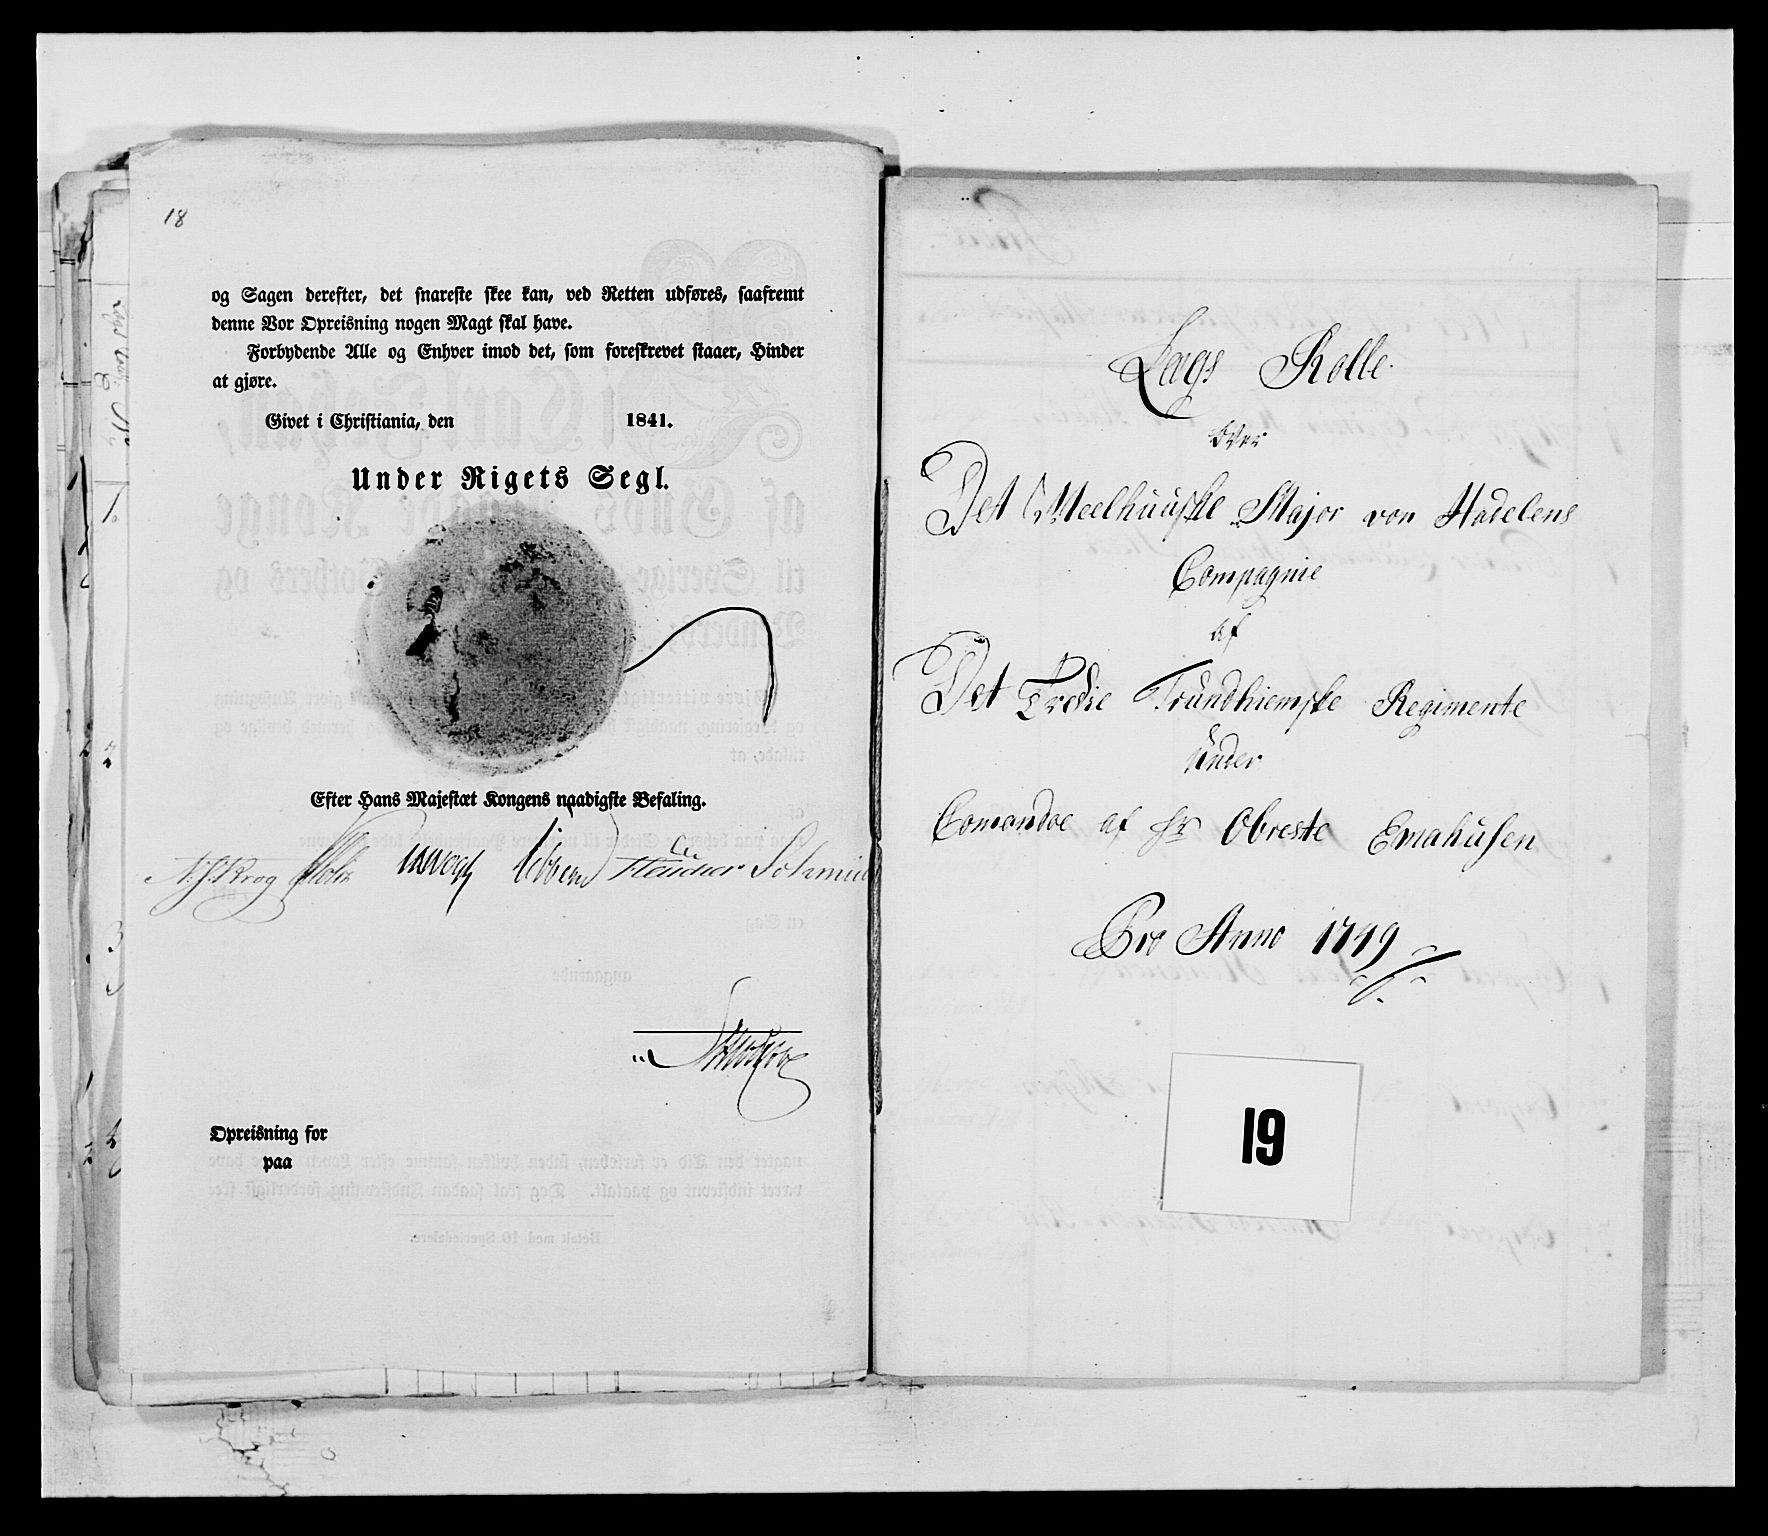 18
og Sagen derefter, det snareste skee kan, ved Retten udføres, saafremt
denne Vor Opreisning nogen Magt skal have.
Forbydende Alle og Enhver imod det, som foreskrevet staaer, Hinder
at gjøre.
Givet i Christiania, den 1841.
Under Rigets Segl.
Efter Hans Majestæt Kongens naadigste Befaling.
Krog Vogt Schmidt
Opreisning for
paa
Lags Rolle
over
Det Meelhuuske Major von Hadelens
Compagnie
af
Det Tredie Trundhiemske Regimente
under
Comandoe af Hr Obreste Emahusen
Pro Anno 1749
19